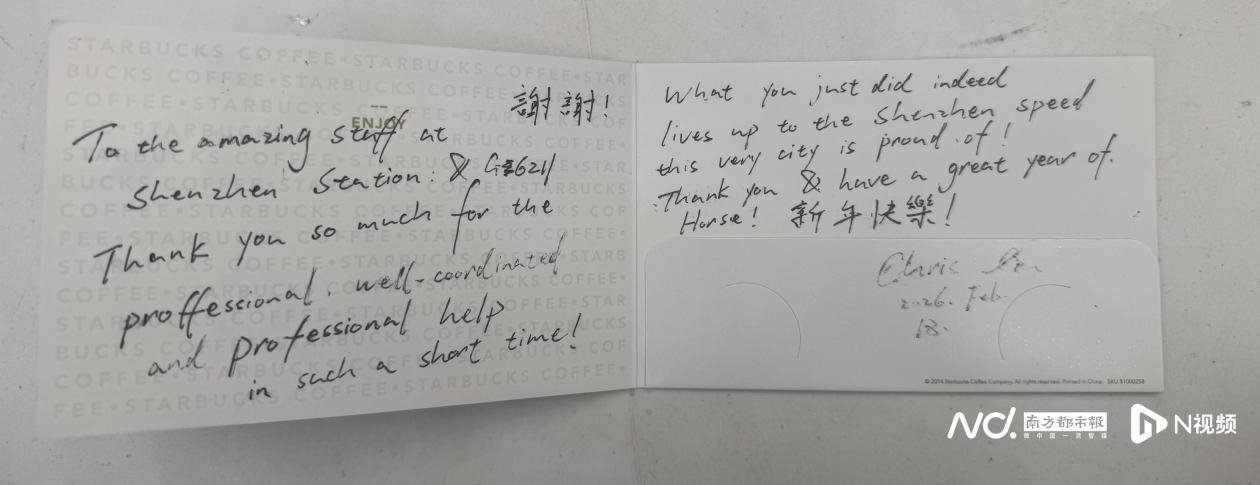 STARBUCKS COFFEE•STARBUCKS COFFEE•STAR
BUCKS COFFEE•STARBUCKS COFFEE•STARBUCKS
ENJOY
謝謝!
To the amazing staff at
Shenzhen Station: & G6211
Thank you so much for the
proffessional. well-coordinated
and professional help
in such a short time!
What you just did indeed
lives up to the Shenzhen speed
this very city is proud of!
Thank you & have a great year of
Horse! 新年快樂!
2026. Feb.
18.
© 2014 Starbucks Coffee Company. All rights reserved. Printed in China. SKU 81000258
南方都市報
做中国一流智媒
N视频